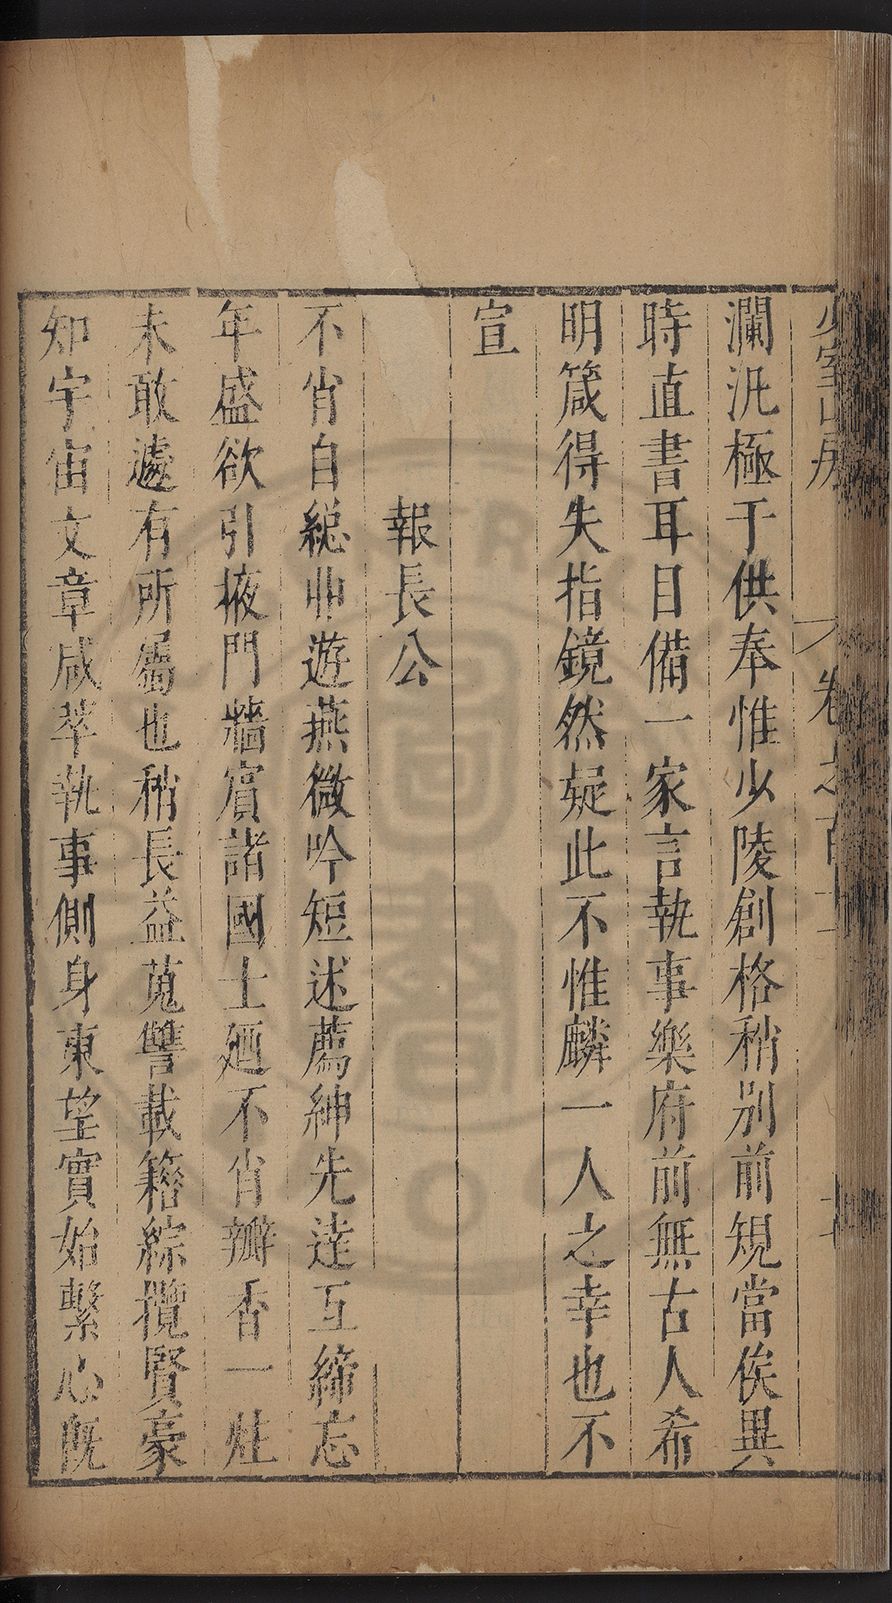 少室山房 卷之百十
瀾汎極于供奉惟少陵創格稍別前規當俟異
時直書耳目備一家言執事樂府前無古人希
明箴得失指鏡然疑此不惟麟一人之幸也不
宣
報長公
不肖自緫丱遊燕微吟短述薦紳先達互締忘
年盛欲引掖門牆賔諸國士廼不肖瓣香一炷
未敢遽有所屬也稍長益蒐讐載籍綜攬賢豪
知宇宙文章咸萃執事側身東望實始繫心旣